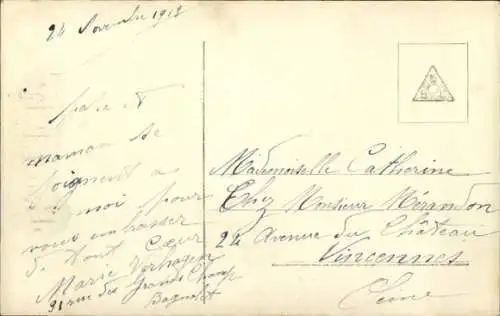 24 Novembre 1912
papa et
maman se
joignent a
moi pour
vous embrasser
de tout Cœur
Marie Verhagen
31 rue des Grands Champs
Bagnolet
Mademoiselle Catherine
Chez Monsieur Mérandon
24 Avenue du Château
Vincennes
Seine